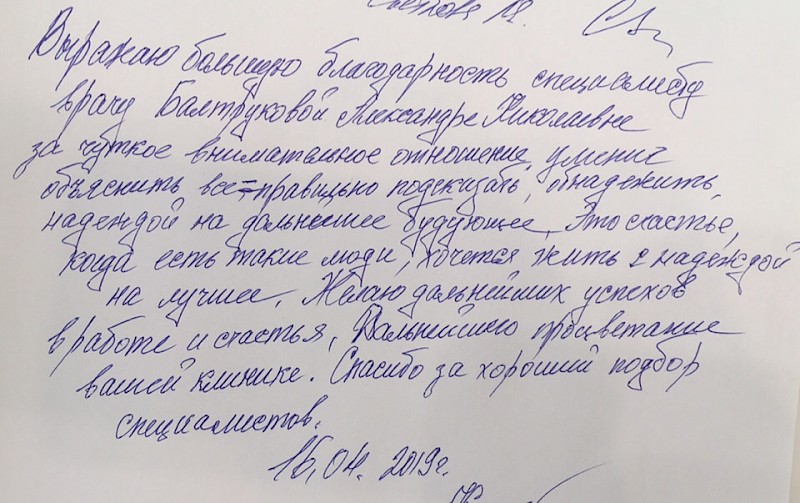 Выражаю большую благодарность специалисту
врачу Балтруковой Александре Николаевне
за чуткое внимательное отношение, умение
объяснить все правильно подсказать, обнадежить,
надеждой на дальнешее будующее. Это счастье,
когда есть такие люди, хочется жить с надеждой
на лучшее. Желаю дальнейших успехов
в работе и счастья, Дальнейшего процветание
вашей клинике. Спасибо за хороший подбор
специалистов.
16.04. 2019г.